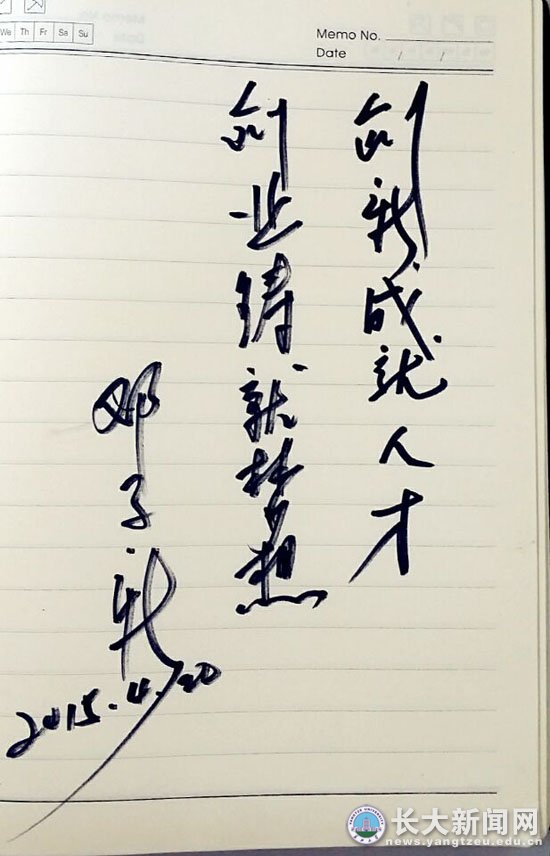 We Th Fr Sa Su
Memo No.
Date / /
创新成就人才
创业铸就梦想
邓子新
2015.4.20
长大新闻网
news.yangtzeu.edu.cn